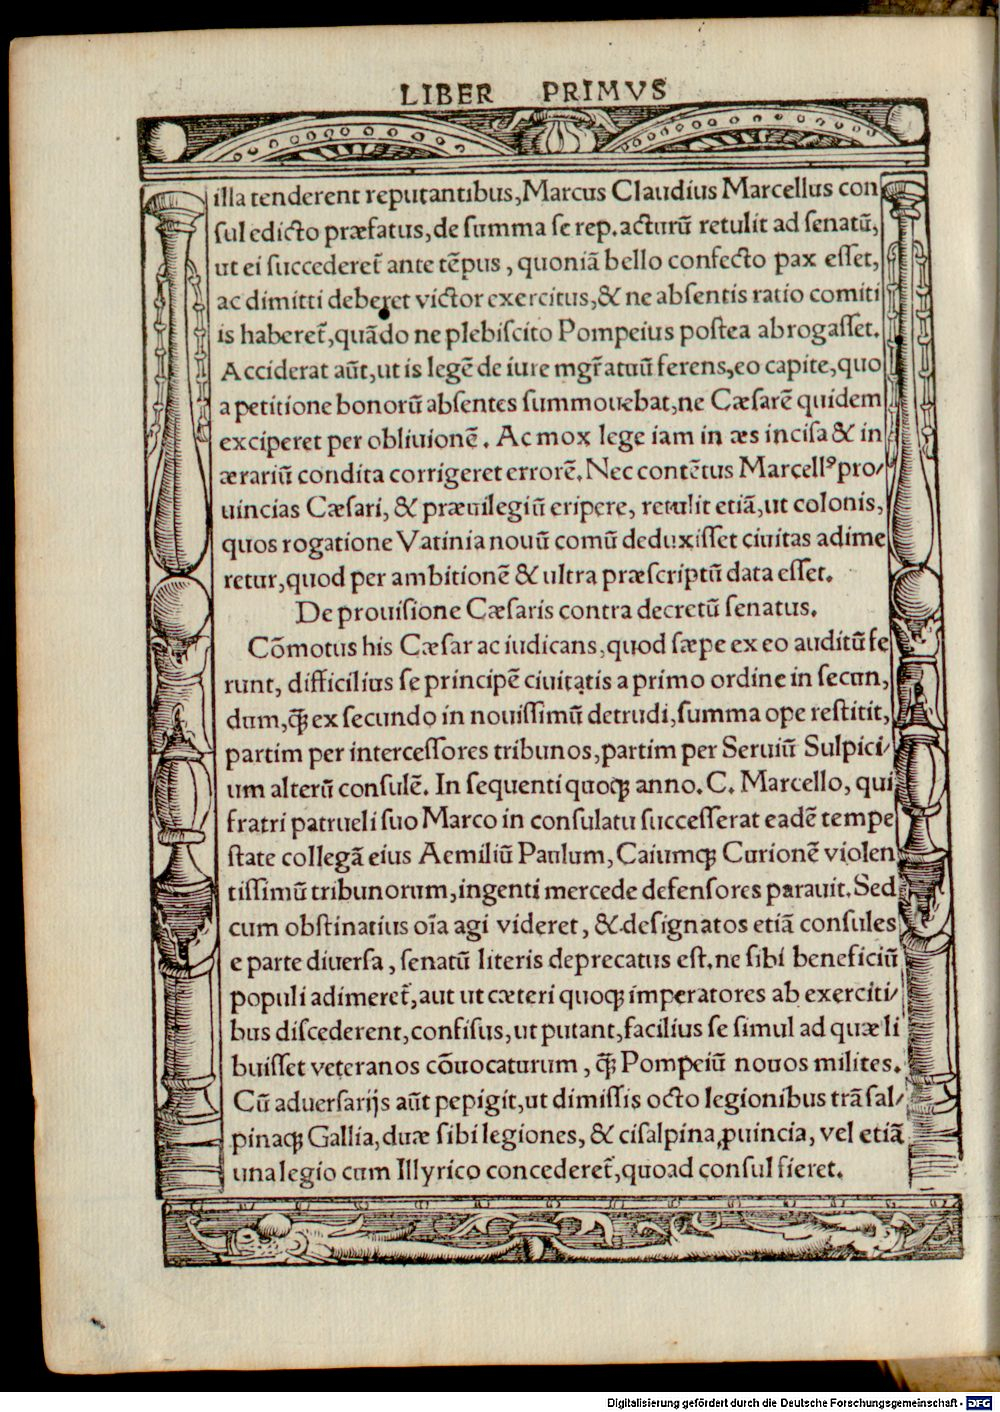 LIBER PRIMVS
illa tenderent reputantibus, Marcus Claudius Marcellus con
ſul edicto præfatus, de ſumma ſe rep. acturũ retulit ad ſenatũ,
ut ei ſuccederet̃ ante tẽpus, quoniã bello confecto pax eſſet,
ac dimitti deberet victor exercitus, & ne abſentis ratio comiti
is haberet̃, quãdo ne plebiſcito Pompeius poſtea abrogaſſet.
Acciderat aũt, ut is legẽ de iure mgr̃atuũ ferens, eo capite, quo
a petitione bonorũ abſentes ſummouebat, ne Cæſarẽ quidem
exciperet per obliuionẽ. Ac mox lege iam in æs inciſa & in
ærariũ condita corrigeret errorẽ. Nec contẽtus Marcellꝰ pro/
uincias Cæſari, & præuilegiũ eripere, retulit etiã, ut colonis,
quos rogatione Vatinia nouũ comũ deduxiſſet ciuitas adime
retur, quod per ambitionẽ & ultra præſcriptũ data eſſet.
De prouiſione Cæſaris contra decretũ ſenatus.
Cõmotus his Cæſar ac iudicans, quod ſæpe ex eo auditũ fe
runt, difficilius ſe principẽ ciuitatis a primo ordine in ſecun,
dum, q̃ꝫ ex ſecundo in nouiſſimũ detrudi, ſumma ope reſtitit,
partim per interceſſores tribunos, partim per Seruiũ Sulpici/
um alterũ conſulẽ. In ſequenti quoqꝫ anno. C. Marcello, qui
fratri patrueli ſuo Marco in conſulatu ſucceſſerat eadẽ tempe
ſtate collegã eius Aemiliũ Paulum, Caiumqꝫ Curionẽ violen
tiſſimũ tribunorum, ingenti mercede defenſores parauit. Sed
cum obſtinatius oĩa agi videret, & deſignatos etiã conſules
e parte diuerſa, ſenatũ literis deprecatus eſt. ne ſibi beneficiũ
populi adimeret̃, aut ut cæteri quoqꝫ imperatores ab exerciti/
bus diſcederent, confiſus, ut putant, facilius ſe ſimul ad quæ li
buiſſet veteranos cõuocaturum, q̃ꝫ Pompeiũ nouos milites.
Cũ aduerſarijs aũt pepigit, ut dimiſſis octo legionibus trãſal/
pinaqꝫ Gallia, duæ ſibi legiones, & ciſalpina ꝓuincia, vel etiã
una legio cum Illyrico concederet̃, quoad conſul fieret.
Digitalisierung gefördert durch die Deutsche Forschungsgemeinschaft - DFG